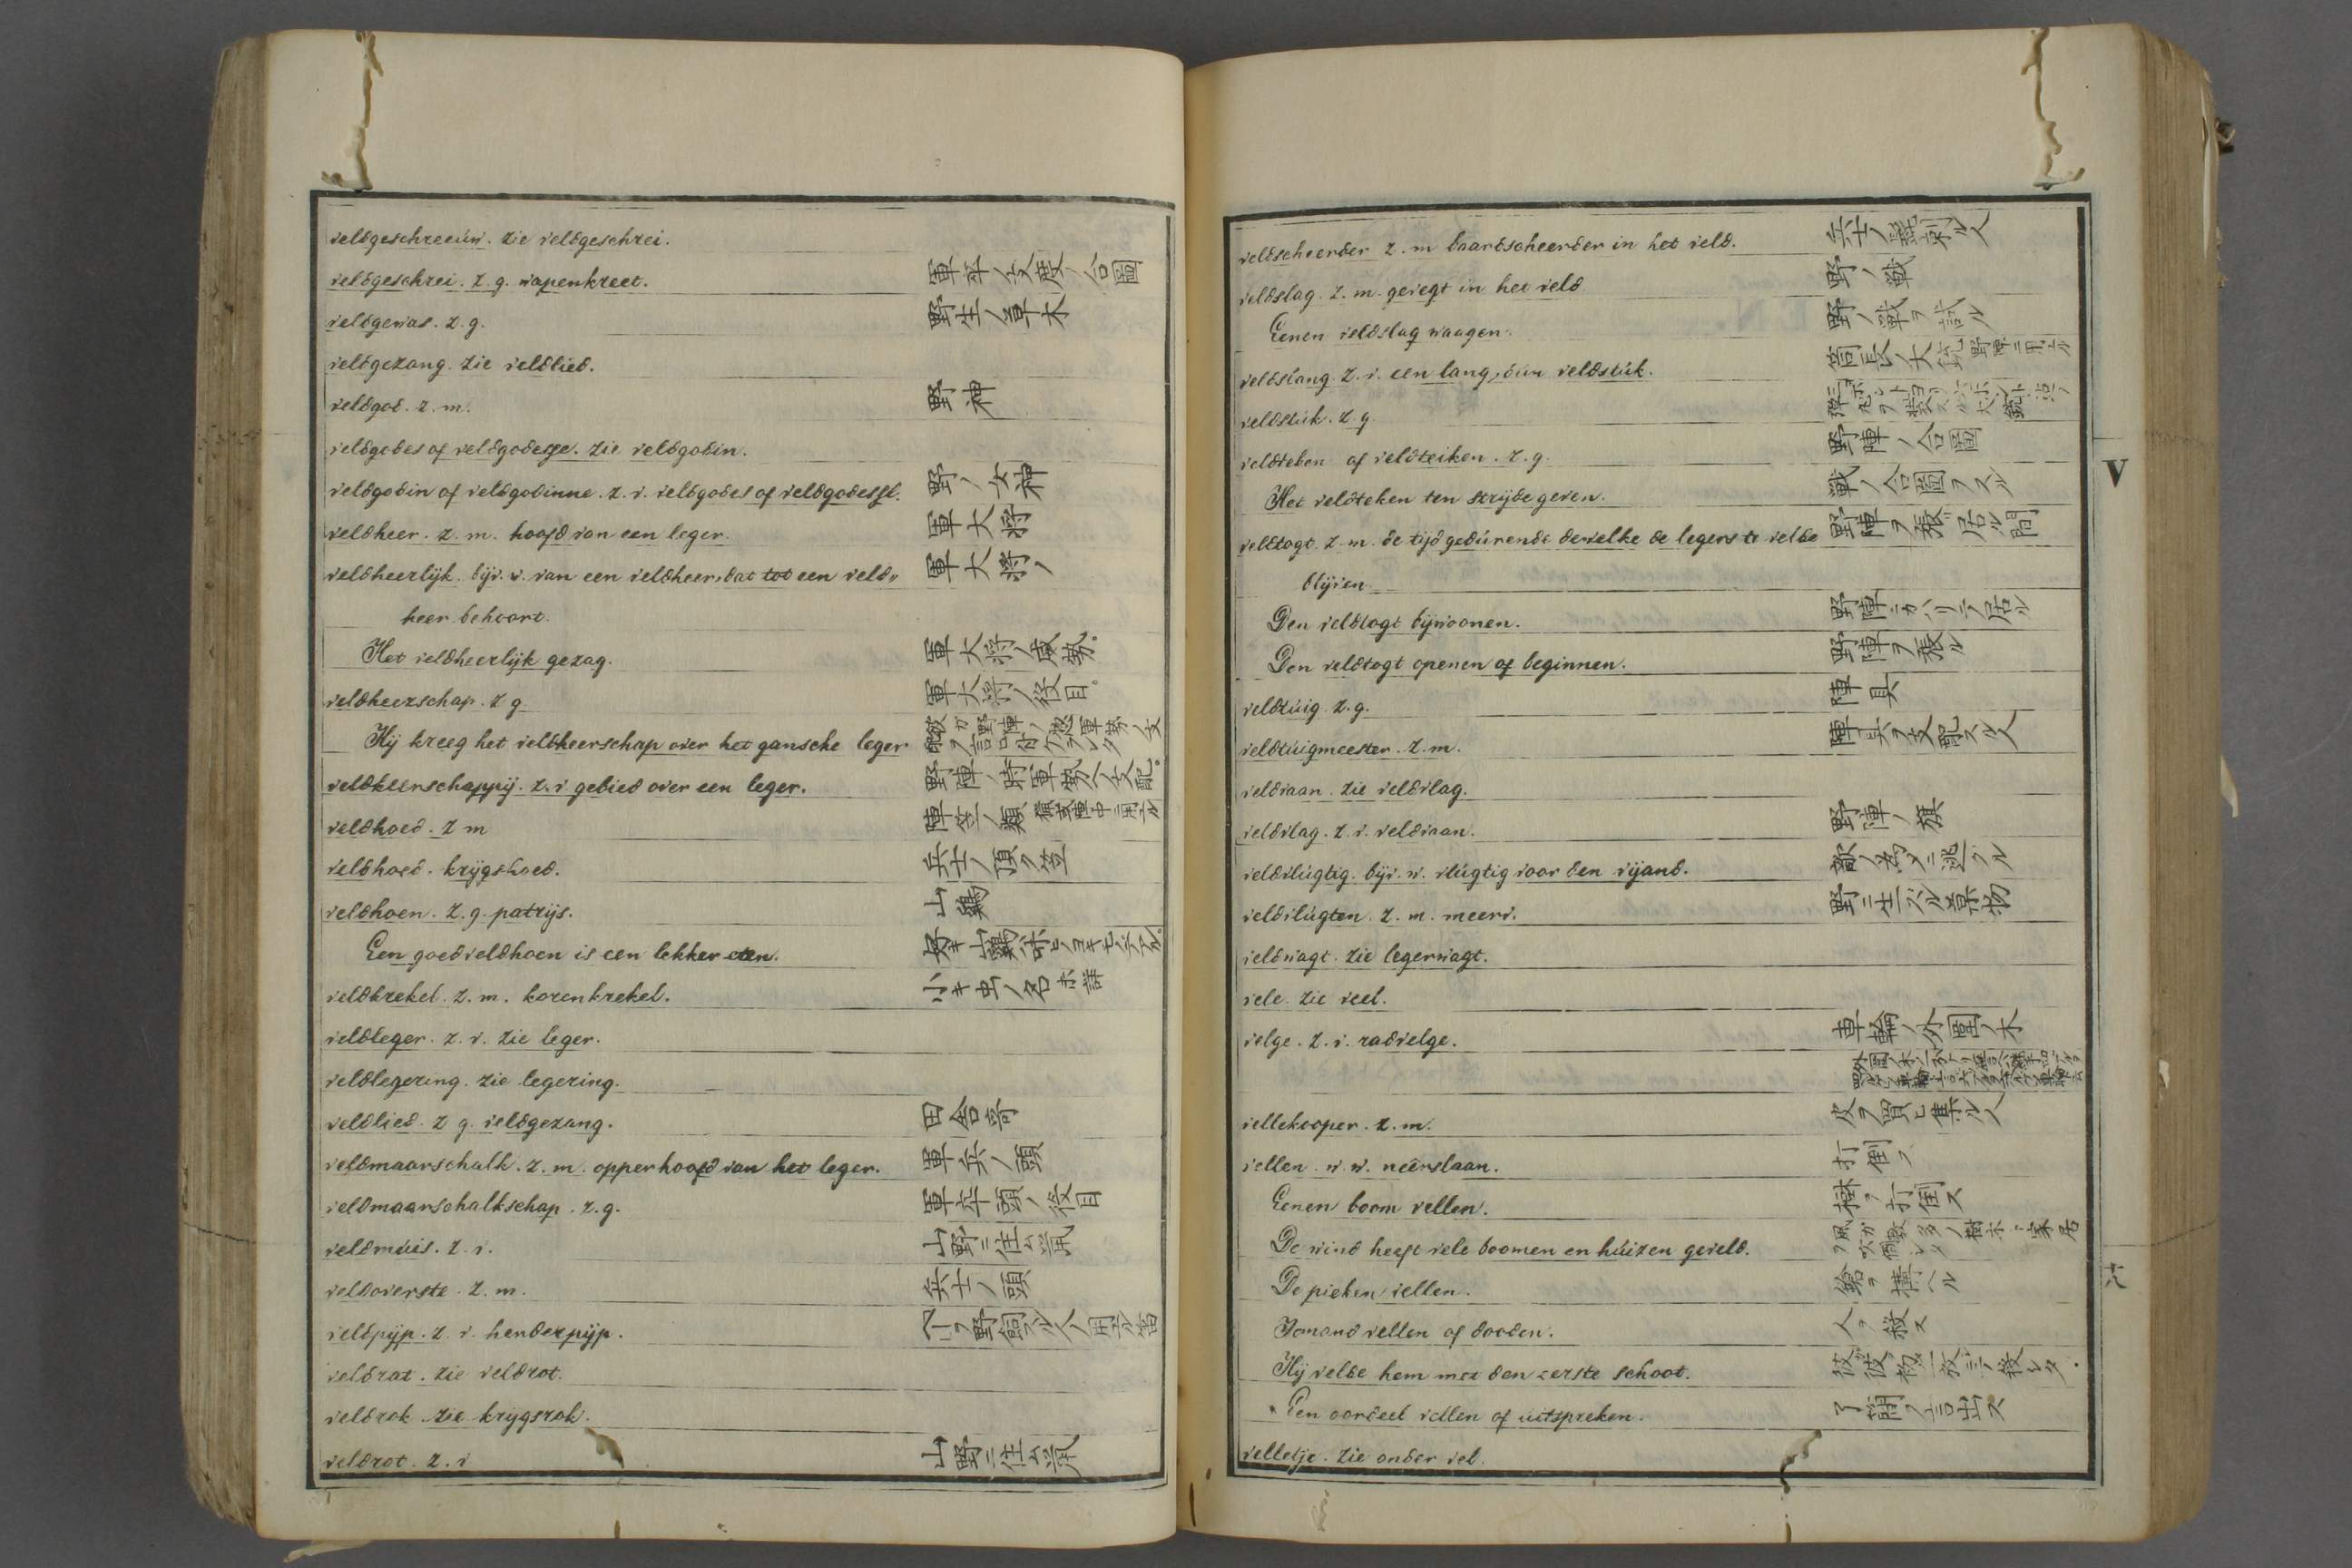 veldgeschreeúw. zie veldgeschrei.
veldgeschrei. z. g. wapenkreet. 軍卒ノ支度ノ合圖
veldgewas. z. g. 野生ノ草木
veldgezang. zie veldlied.
veldgod. z. m. 野神
veldgodes of veldgodesse. zie veldgodin.
veldgodin of veldgodinne. z. v. veldgodes of veldgodesse. 野ノ女神
veldheer. z. m. hoofd van een leger. 軍大将
veldheerlijk. bijv. w. van een veldheer, dat tot een veld„ 軍大将ノ
heer behoort.
Het veldheerlijk gezag. 軍大将ノ威勢。
veldheerschap. z g 軍大将ノ役目。
Hij kreeg het veldheerschap over het gansche leger
veldheerschappij. z. v gebied over een leger.
veldhoed. z m 陣笠ノ類
veldhoed. krijgshoed. 兵士ノ頂ク笠
veldhoen. z. g. patrijs. 山鶉
Een goed veldhoen is een lekker eten.
veldkrekel. z. m. korenkrekel. 小キ虫ノ名 未詳
veldleger. z. v. zie leger.
veldlegering. zie legering.
veldlied. z g. veldgezang. 田舎哥
veldmaarschalk. z. m. opperhoofd van het leger. 軍兵ノ頭
veldmaarschalkschap. z. g. 軍卒頭ノ役目
veldmúis. z. v. 山野ニ住ム鼠
veldoverste. z. m. 兵士ノ頭
veldpijp. z. v. herderpijp.
veldrat. zie veldrot.
veldrok. zie krijgsrok.
veldrot. z. v 山野ニ住ム鼠
veldscheerder z. m baardscheerder in het veld.
veldslag. z. m. gevegt in het veld 野ノ戦
Eenen veldslag waagen. 野ノ戦ヲ試ル
veldslang. z. v. een lang, dún veldstúk. 筒長ノ大銃 野陣ニ用ユル
veldstúk. z. g.
veldteken of veldteiken. z. g. 野陣ノ合圖
Het veldteken ten strijde geven. 戦ノ合圖ヲスル
veldtogt. z. m. de tijd gedúrende dewelke de legers te velde 野陣ヲ張居ル間
blijven
Den veldtogt bijwoonen.
Den veldtogt openen of beginnen. 野陣ヲ張ル
veldtúig. z. g. 陣具
veldtúigmeester. z. m. 陣具ヲ支配スル人
veldvaan. zie veldvlag.
veldvlag. z. v. veldvaan. 野陣ノ旗
veldvlúgtig. bijv. w. vlúgtig voor den vijand. 敵ノ為メニ逃グル
veldvlúgten. z. m. meerv.
veldwagt. zie legerwagt.
vele. zie veel.
velge. z. v. radvelge. 車輪ノ外圍ノ木
V
vellekooper. z. m. 皮ヲ買ヒ集ル人
vellen. w. w. neêrslaan. 打倒ス
Eenen boom vellen. 樹ヲ打倒ス
De wind heeft vele boomen en húizen geveld.
De pieken vellen. 鎗ヲ構ヘル
Iemand vellen of dooden. 人ヲ殺ス
Hij velde hem met den eerste schoot.
* Een oordeel vellen of uitspreken. 了簡ヲ言出ス
velletje. zie onder vel.